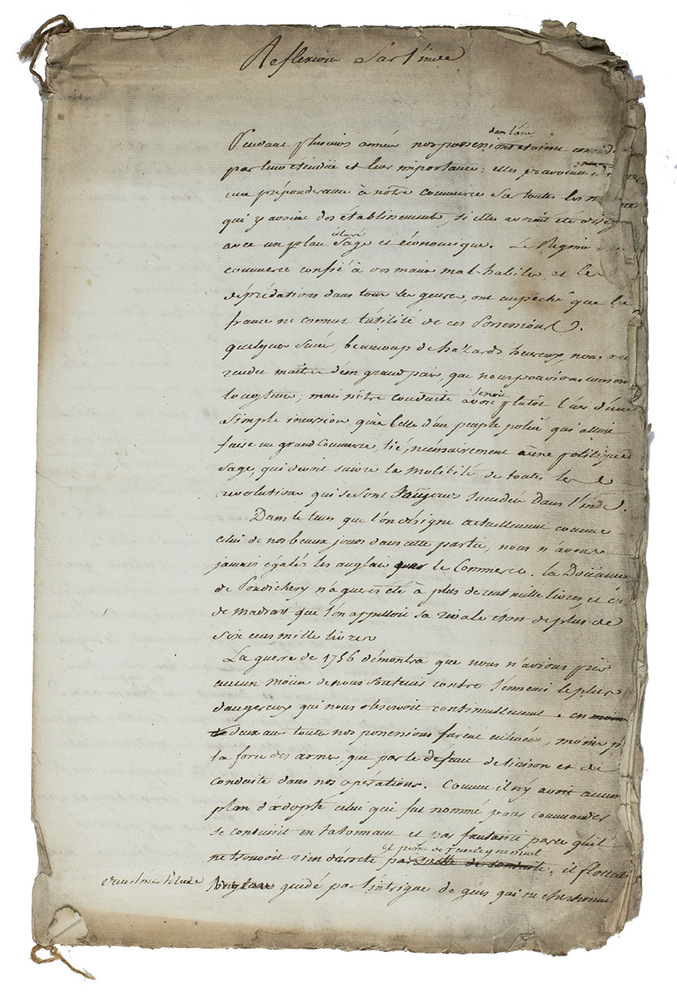 Reflexions Sur l'inde
dans l'asie
Pendant plusieurs années nos possessions etoient
par leur etendüe et leur importance : elles
une préponderance à nôtre commerce Sur toutes les
qui y avoient des etablissements, si elles avoient eté
avec un plan Sage et économique. Le Regime
commerce confié à des mains mal-habiles et les
déprédations dans tous les genres ont empeché que la
france ne connut l'utilité de ces Possessions.
quelques succès, beaucoup de hazards heureux nous
rendu maitre d'un grand païs, que nous pouvions
longtems ; mais nôtre conduite avoit plutôt l'air d'une
Simple invasion que celle d'un peuple policé qui alloit
faire un grand Commerce, lié nécessairement à une politique
sage, qui devoit suivre la mobilité de toutes les
revolutions qui se sont Toujours succedées dans l'inde.
Dans le tems que l'on désigne actuellement comme
celui de nos beaux jours dans cette partie, nous n'avons
jamais égalés les anglais pour le Commerce. la Doüanne
de Pondichery n'a gueres été à plus de cent mille livres, et celle
de Madrast que l'on appelloit sa rivale etoit de plus de
Six cens mille livres
La guerre de 1756 démontra que nous n'avions pris
aucun moïen de nous Soutenir contre l'ennemi le plus
dangereux qui nous observoit continuellement. en moins
de deux ans toutes nos possessions furent enlevées, moins par
la force des armes, que par le defaut de liaison et de
conduite dans nos operations. Comme il n'y avoit aucun
plan d'adopté celui qui fut nommé pour commander
se conduisit en tatonnant et
ne trouvoit rien d'arrêté par de conduite, il flottoit
guidé par l'intrigue de gens qui ne cherchoient